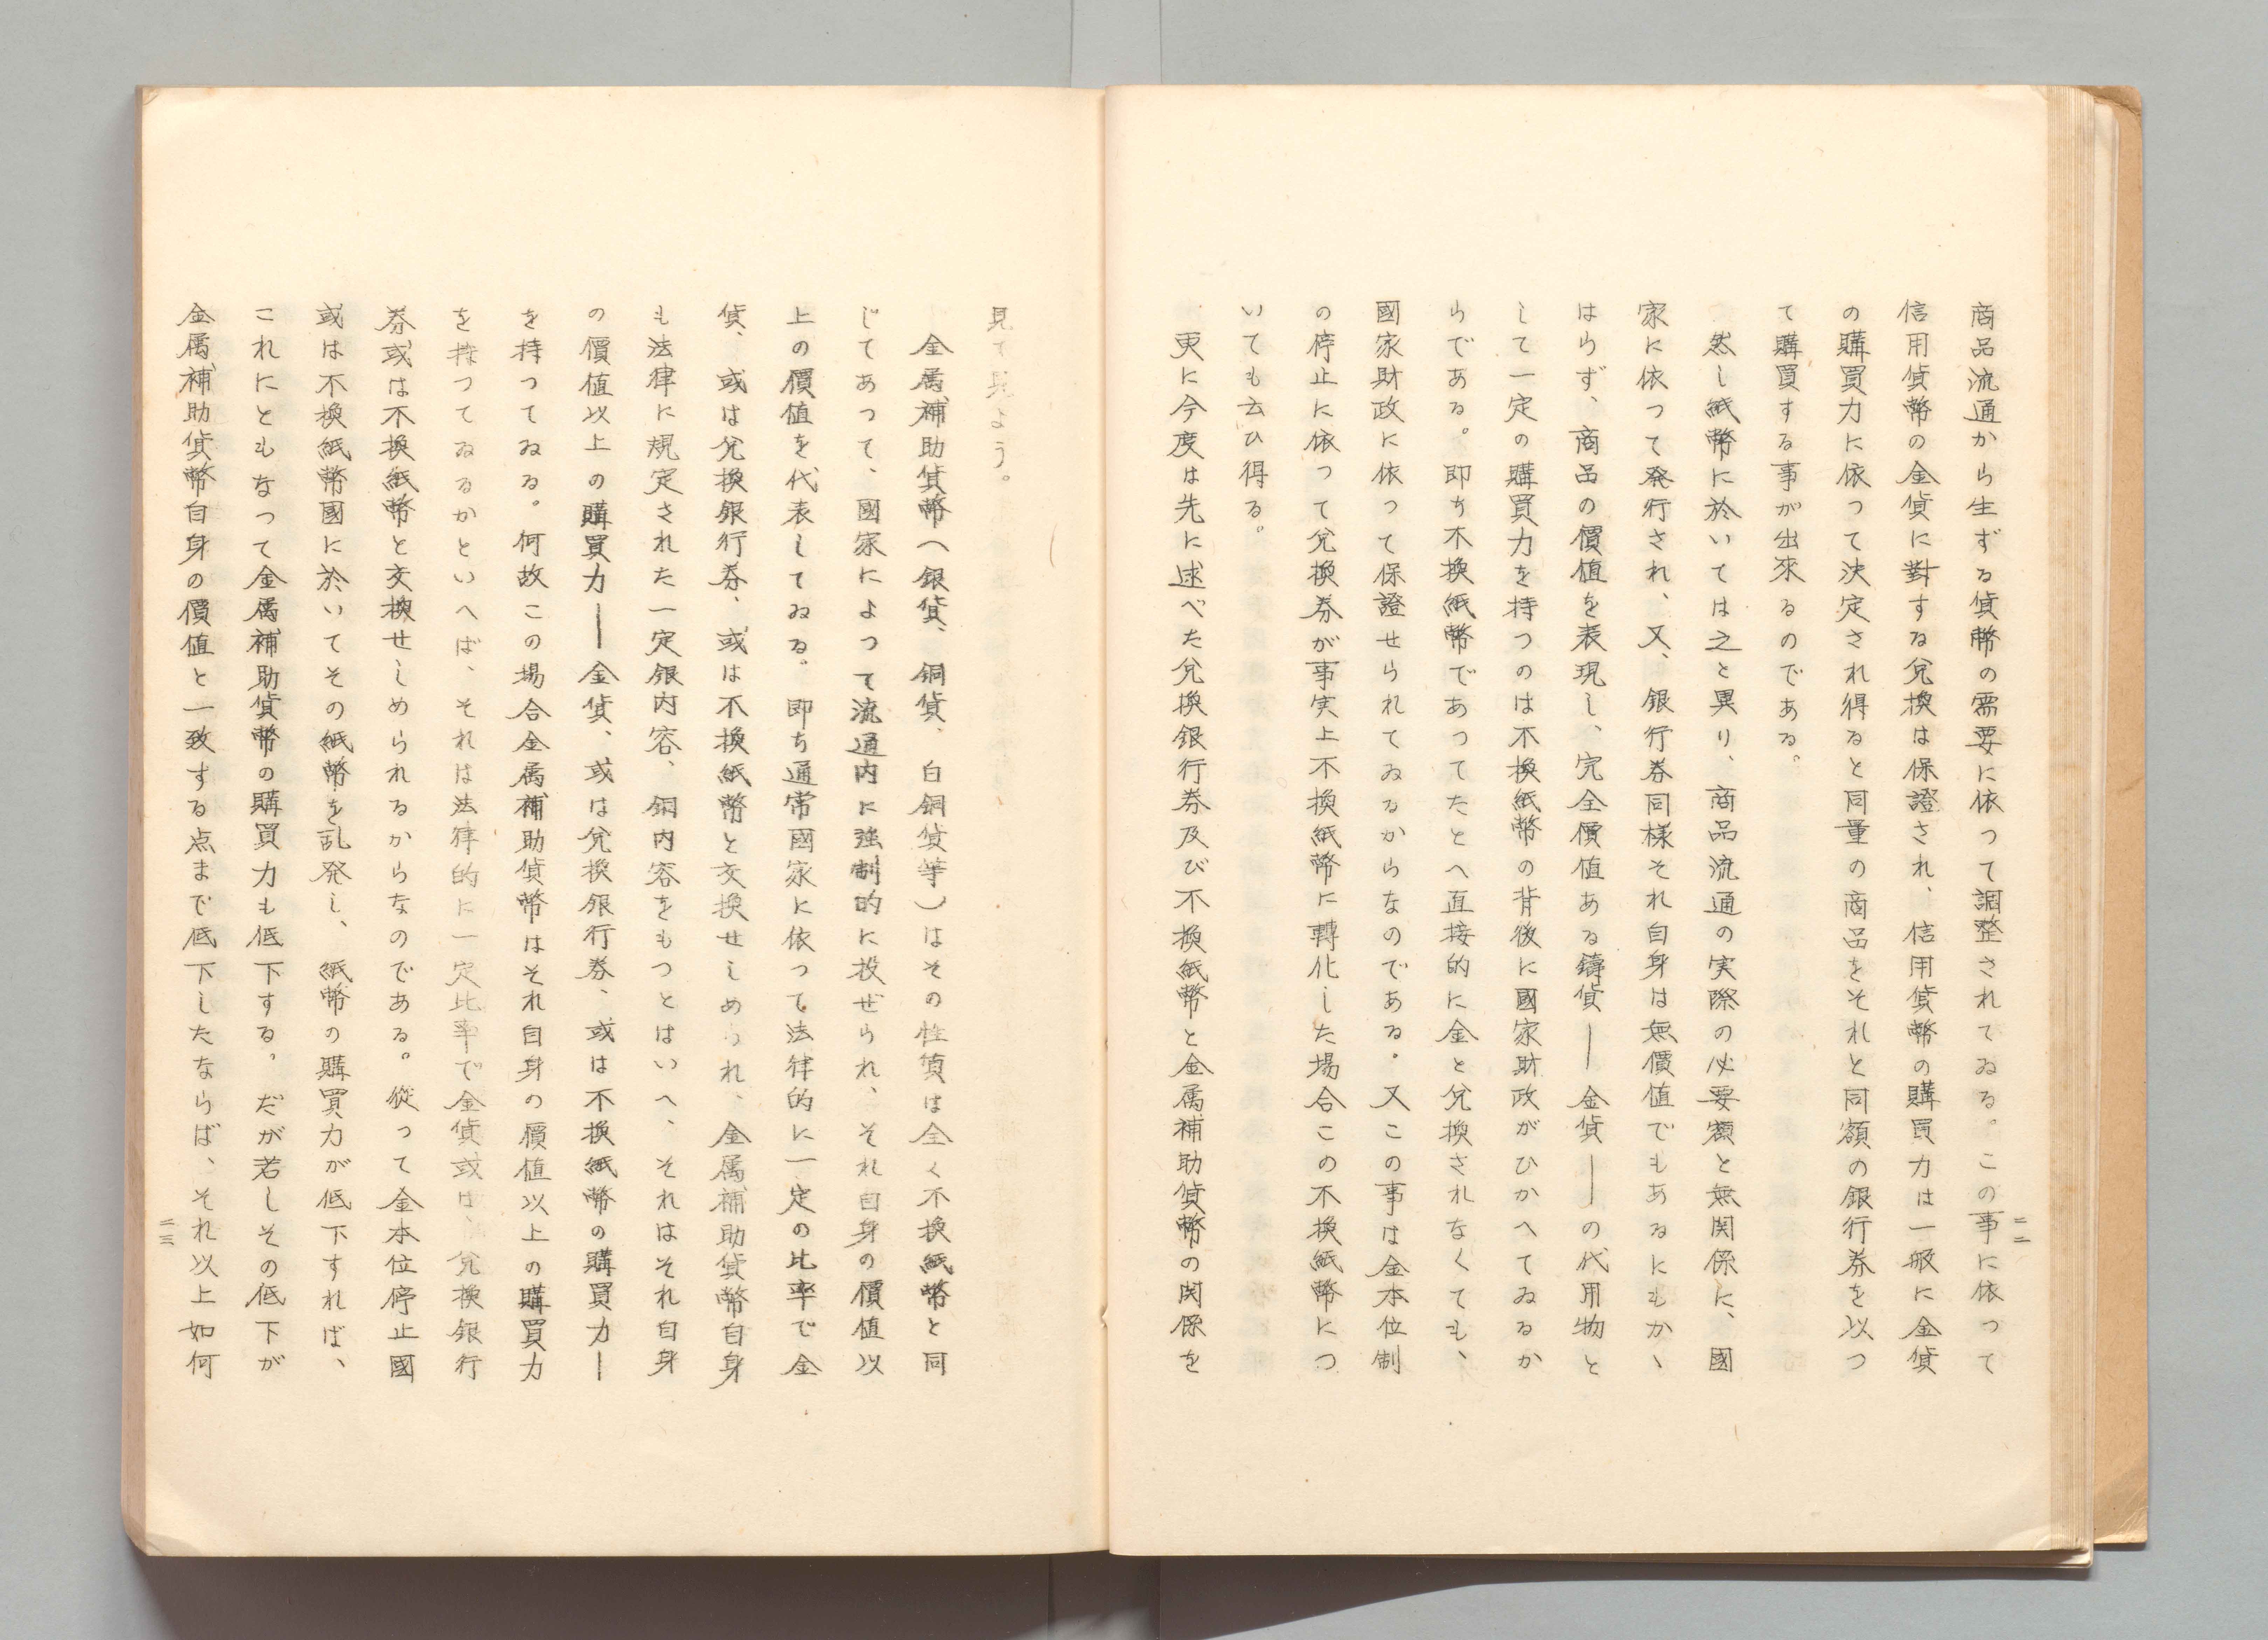 商品流通から生ずる貨幣の需要に依つて調整されてゐる。この事に依つて
信用貨幣の金貨に對する兌換は保證され、信用貨幣の購買力は一般に金貨
の購買力に依つて決定され得ると同量の商品をそれと同額の銀行券を以つ
て購買する事が出來るのである。
然し紙幣に於いては之と異り、商品流通の実際の必要額と無関係に、國
家に依つて発行され、又、銀行券同様それ自身は無價値でもあるにもかゝ
はらず、商品の價値を表現し、完全價値ある鑄貨――金貨――の代用物と
して一定の購買力を持つのは不換紙幣の背後に國家財政がひかへてゐるか
らである。即ち不換紙幣であつてたとへ直接的に金と兌換されなくても、
國家財政に依つて保證せられてゐるからなのである。又この事は金本位制
の停止に依って兌換券が事実上不換紙幣に轉化した場合この不換紙幣につ
いても云ひ得る。
更に今度は先に述べた兌換銀行券及び不換紙幣と金属補助貨幣の関係を
二二
見て見よう。
金属補助貨幣（銀貨、銅貨、白銅貨等）はその性質は全く不換紙幣と同
じてあつて、國家によつて流通内に強制的に投ぜられ、それ自身の價値以
上の價値を代表してゐる。即ち通常國家に依つて法律的に一定の比率で金
貨、或は兌換銀行券、或は不換紙幣と交換せしめられ、金属補助貨幣自身
も法律に規定された一定銀内容、銅内容をもつとはいへ、それはそれ自身
の價値以上の購買力――金貨、或は兌換銀行券、或は不換紙幣の購買力―
を持つてゐる。何故この場合金属補助貨幣はそれ自身の價値以上の購買力
を持つてゐるかといへば、それは法律的に一定比率で金貨或は、兌換銀行
券或は不換紙幣と交換せしめられるからなのである。從って金本位停止國
或は不換紙幣國に於いてその紙幣を乱発し、紙幣の購買力が低下すれば、
これにともなって金属補助貨幣の購買力も低下する。だが若しその低下が
金属補助貨幣自身の價値と一致する点まで低下したならば、それ以上如何
二三